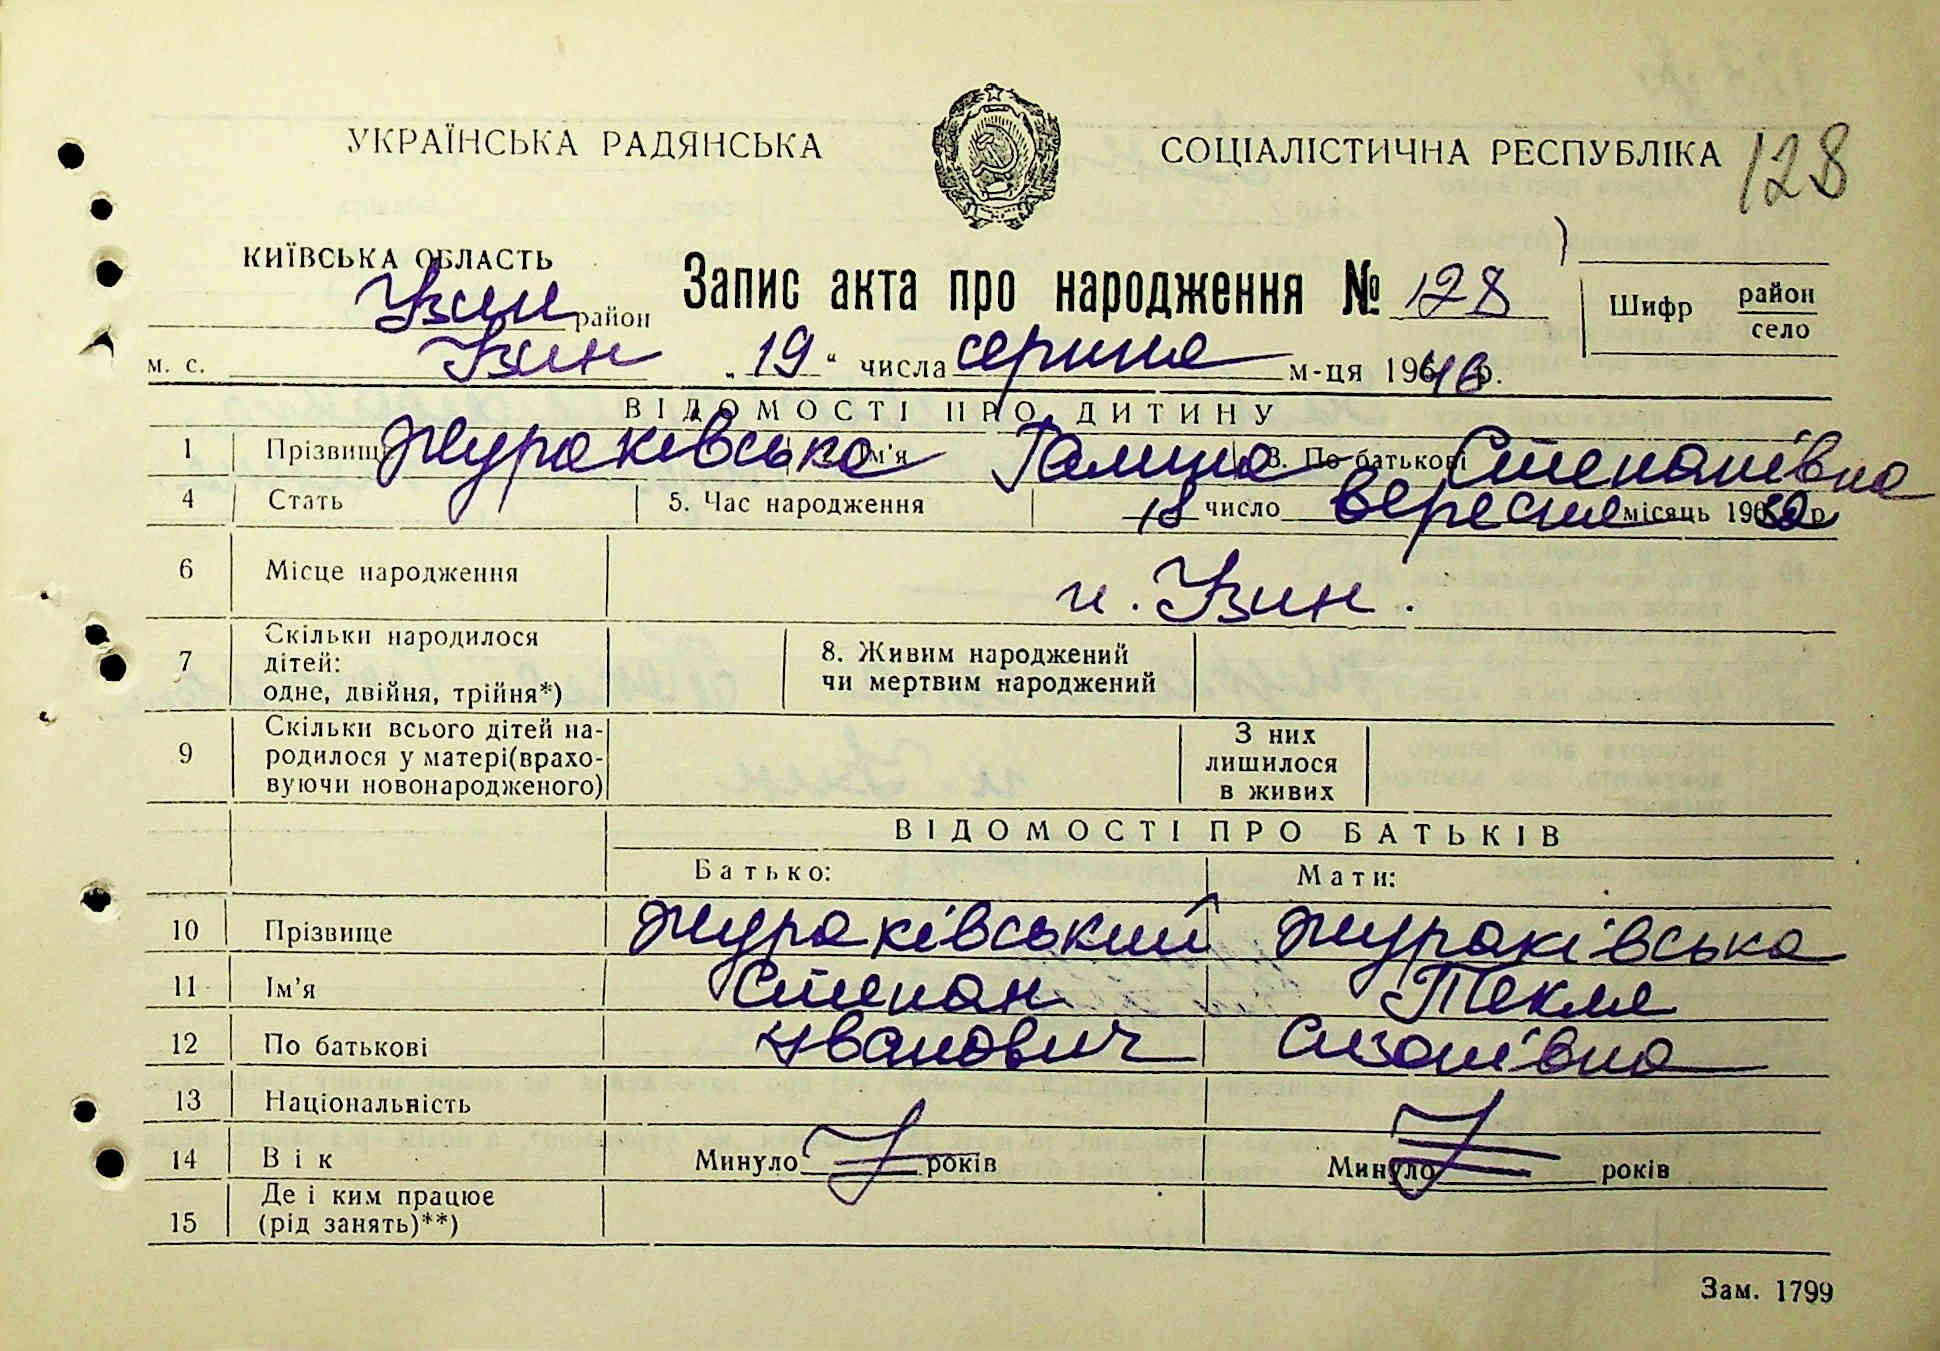 УКРАЇНСЬКА РАДЯНСЬКА СОЦІАЛІСТИЧНА РЕСПУБЛІКА 128
КИЇВСЬКА ОБЛАСТЬ
Узин район Запис акта про народження № 128 Шифр район село
м. с. Узин „19“ числа серпня м-ця 1946 р.
ВІДОМОСТІ ПРО ДИТИНУ
1 Прізвище Жураківська 2. Ім'я Галина 3. По батькові Степанівна
4 Стать 5. Час народження 18 число вересня місяць 19 р.
6 Місце народження м. Узин.
7 Скільки народилося дітей: одне, двійня, трійня*) 8. Живим народжений чи мертвим народжений
9 Скільки всього дітей народилося у матері (враховуючи новонародженого) З них лишилося в живих
ВІДОМОСТІ ПРО БАТЬКІВ
Батько: Мати:
10 Прізвище Жураківський Жураківська
11 Ім'я Степан Текля
12 По батькові Іванович
13 Національність
14 Вік Минуло років Минуло років
15 Де і ким працює (рід занять)**)
Зам. 1799